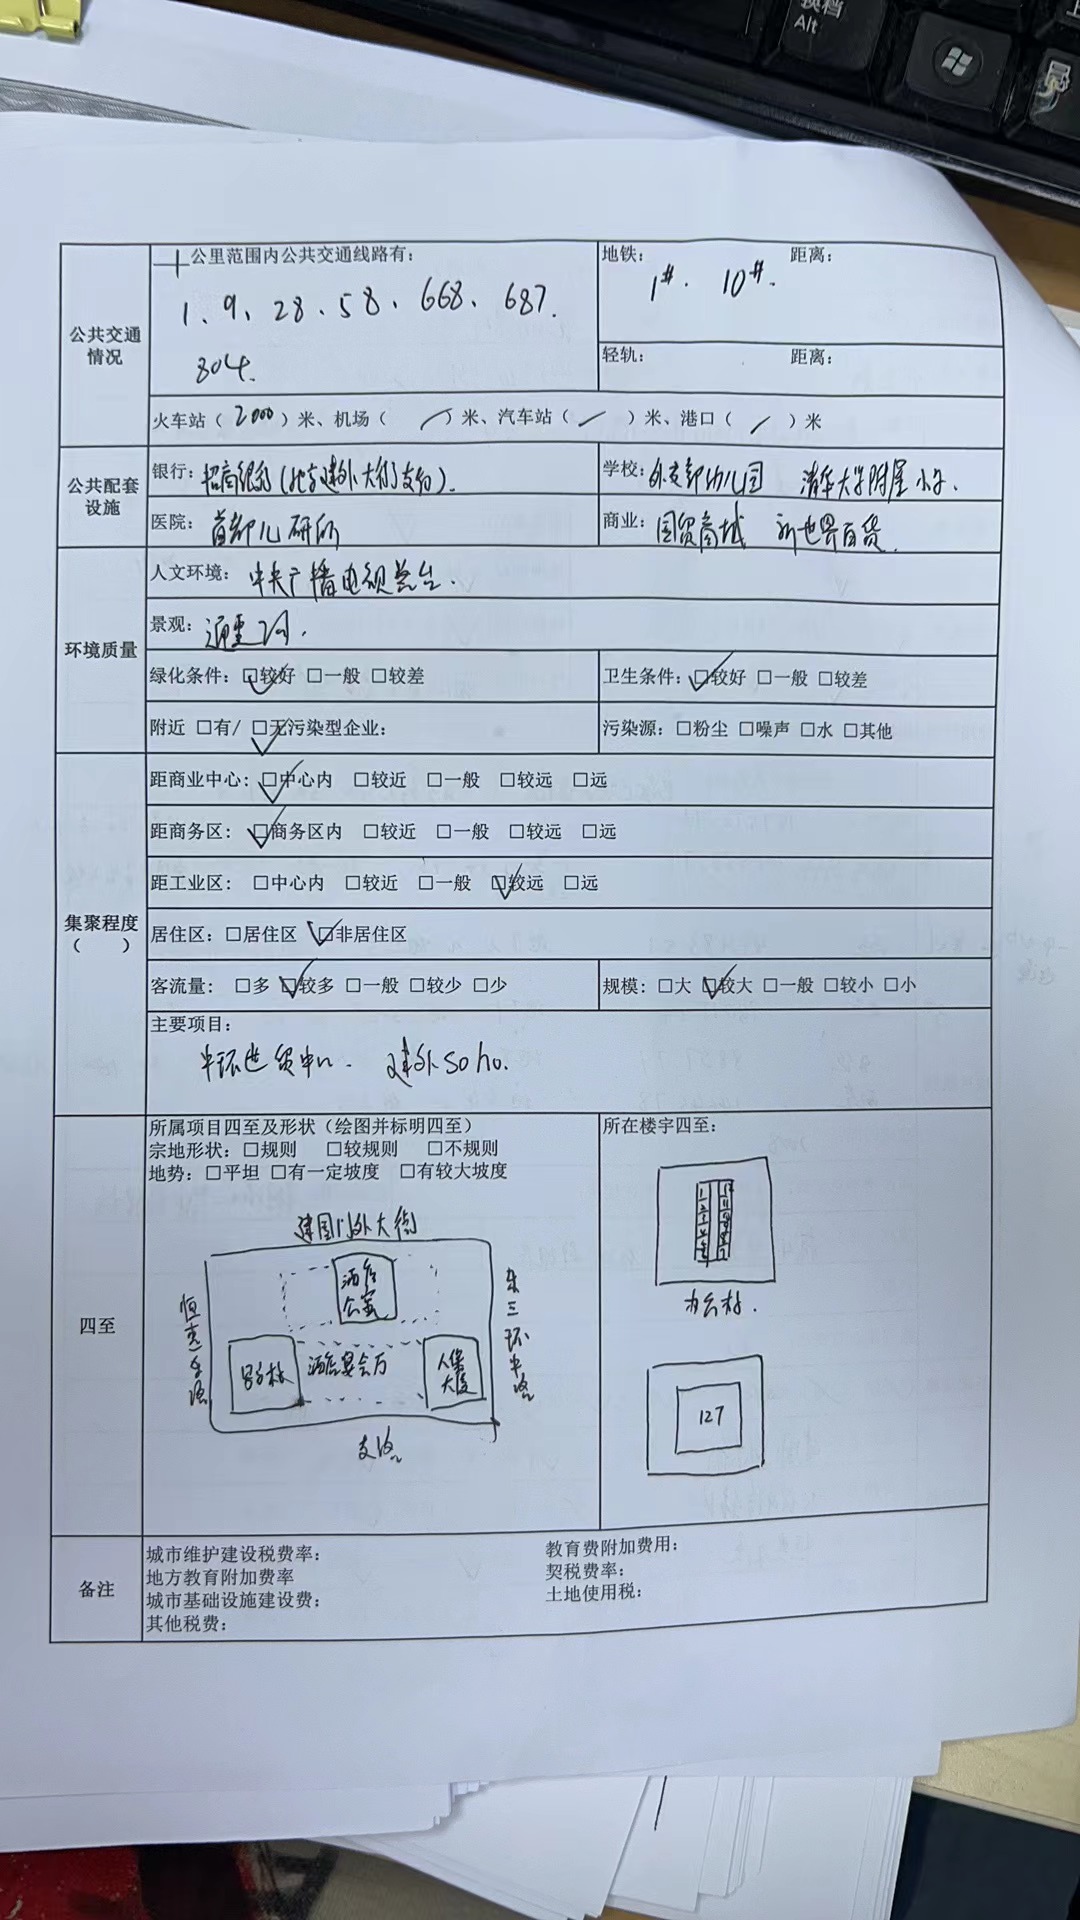 换档
Alt
公共交通
情况
十公里范围内公共交通线路有:
1、9、28、58、668、687.
804.
地铁: 距离:
1#. 10#.
轻轨: 距离:
火车站(2000)米、机场( / )米、汽车站( / )米、港口( / )米
公共配套
设施
银行: 招商银行(北京建外大街支行).
学校: 外交部幼儿园 清华大学附属小学.
医院: 首都儿研所
商业: 国贸商城 新世界百货.
环境质量
人文环境: 中央广播电视总台.
景观: 通惠河.
绿化条件: ☑较好 □一般 □较差
卫生条件: ☑较好 □一般 □较差
附近 □有/ ☑无污染型企业:
污染源: □粉尘 □噪声 □水 □其他
集聚程度
( )
距商业中心: ☑中心内 □较近 □一般 □较远 □远
距商务区: ☑商务区内 □较近 □一般 □较远 □远
距工业区: □中心内 □较近 □一般 ☑较远 □远
居住区: □居住区 ☑非居住区
客流量: □多 ☑较多 □一般 □较少 □少
规模: □大 ☑较大 □一般 □较小 □小
主要项目:
中环世贸中心. 建外soho.
四至
所属项目四至及形状(绘图并标明四至)
宗地形状: □规则 □较规则 □不规则
地势: □平坦 □有一定坡度 □有较大坡度
建国门外大街
酒店
公寓
东三环中路
酒店宴会厅
人保
大厦
支路
所在楼宇四至:
办公楼.
127
备注
城市维护建设税费率:
教育费附加费用:
地方教育附加费率
契税费率:
城市基础设施建设费:
土地使用税:
其他税费: